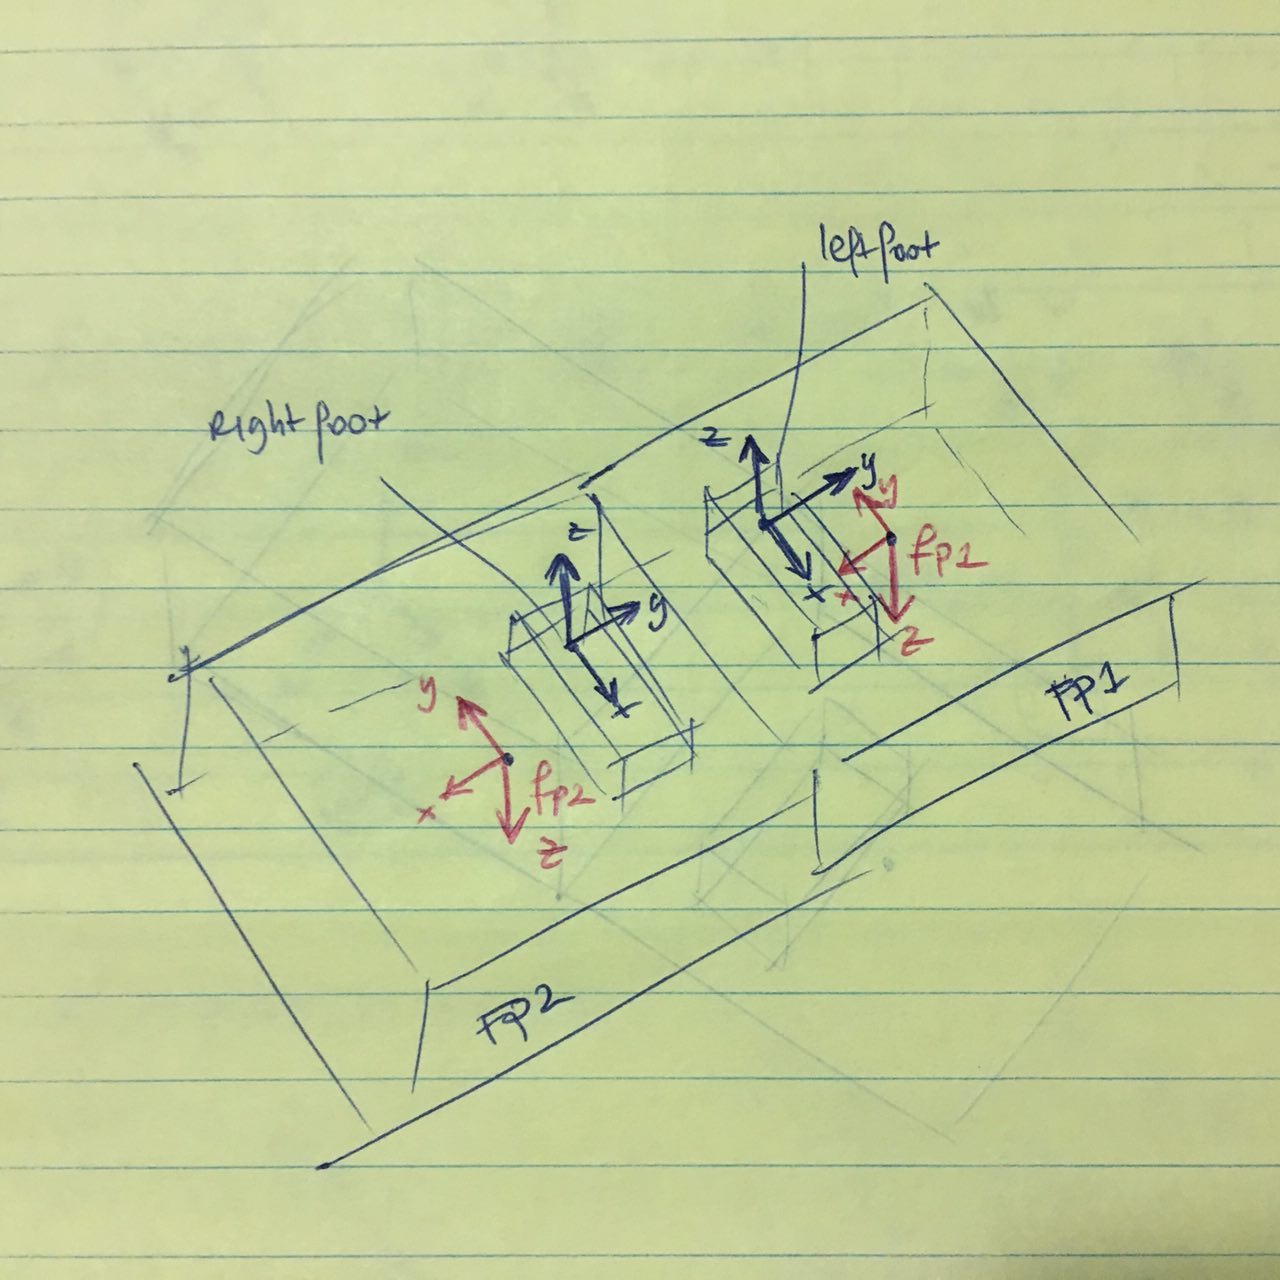 left foot
Right foot
z
y
y
fp1
x
x
z
z
y
x
FP1
y
x
fp2
z
FP2